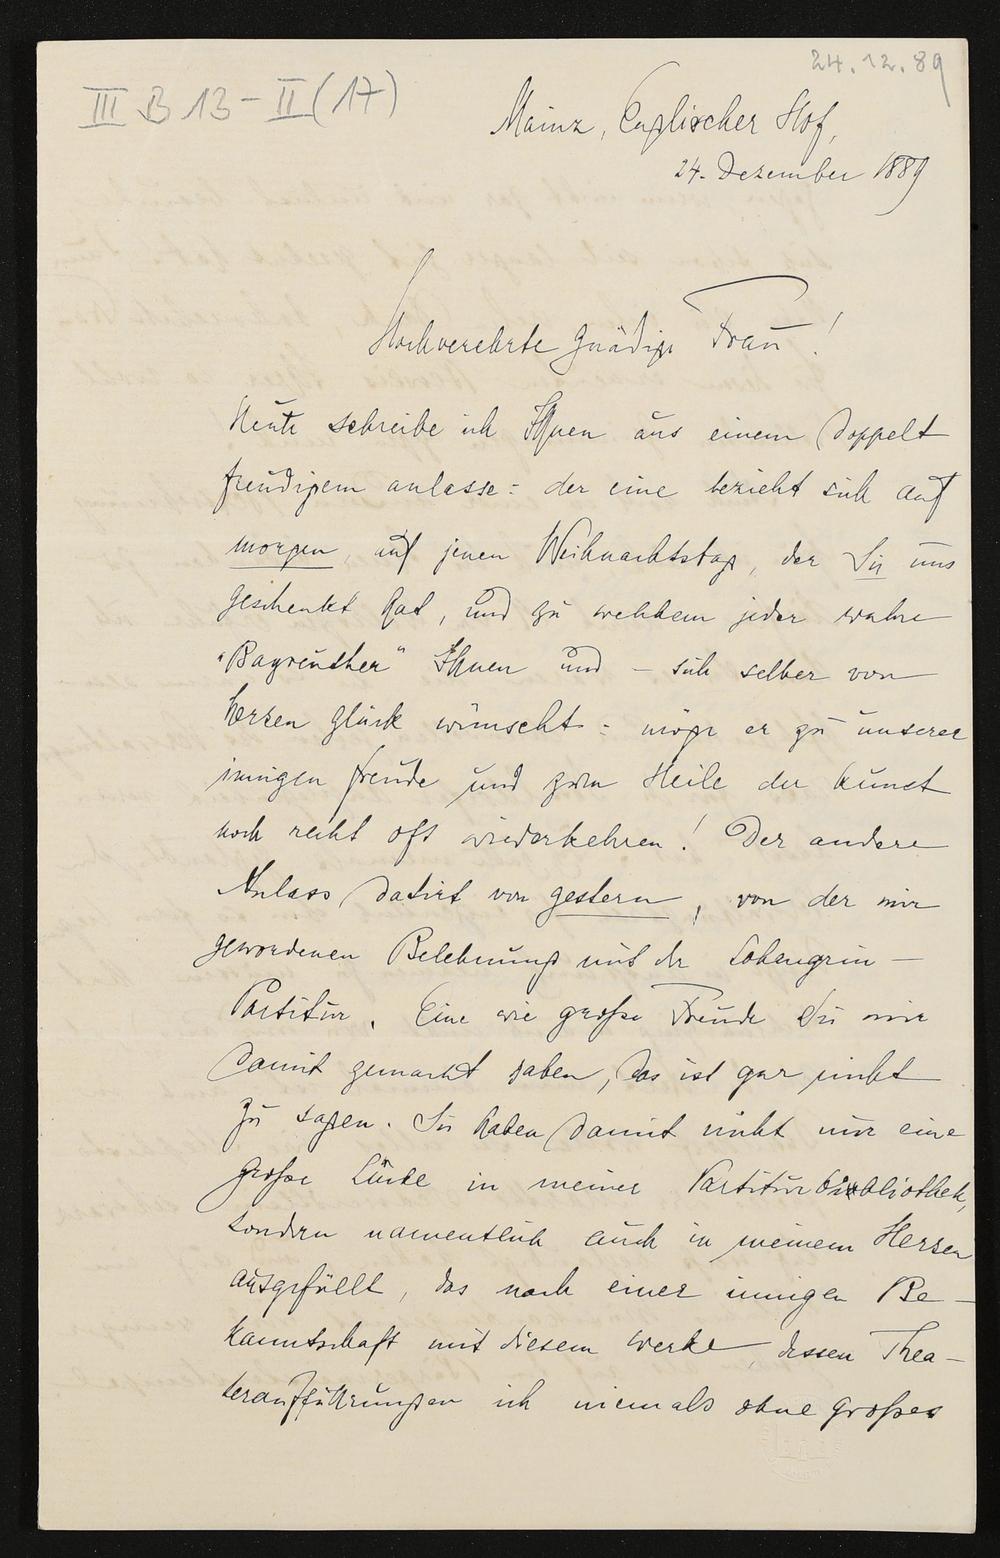 24.12.89
III B 13 - II (17)
Mainz, Englischer Hof,
24. Dezember 1889
Hochverehrte gnädige Frau!
Heute schreibe ich Ihnen aus einem doppelt
freudigem anlasse: der eine bezieht sich auf
morgen, auf jenen Weihnachtstag, der Sie uns
geschenkt hat, und zu welchem jeder wahre
"Bayreuther" Ihnen und – sich selber von
Herzen Glück wünscht: möge er zu unserer
innigen Freude und zum Heile der Kunst
noch recht oft wiederkehren! Der andere
Anlass datirt von gestern, von der mir
gewordenen Belehnung mit der Lohengrin-
Partitur. Eine wie große Freude Sie mir
damit gemacht haben, das ist gar nicht
zu sagen. Sie haben damit nicht nur eine
große Lücke in meiner Partiturbibliothek,
sondern namentlich auch in meinem Herzen
ausgefüllt, das nach einer innigen Be-
kanntschaft mit diesem Werke, dessen Thea-
teraufführungen ich niemals ohne großes